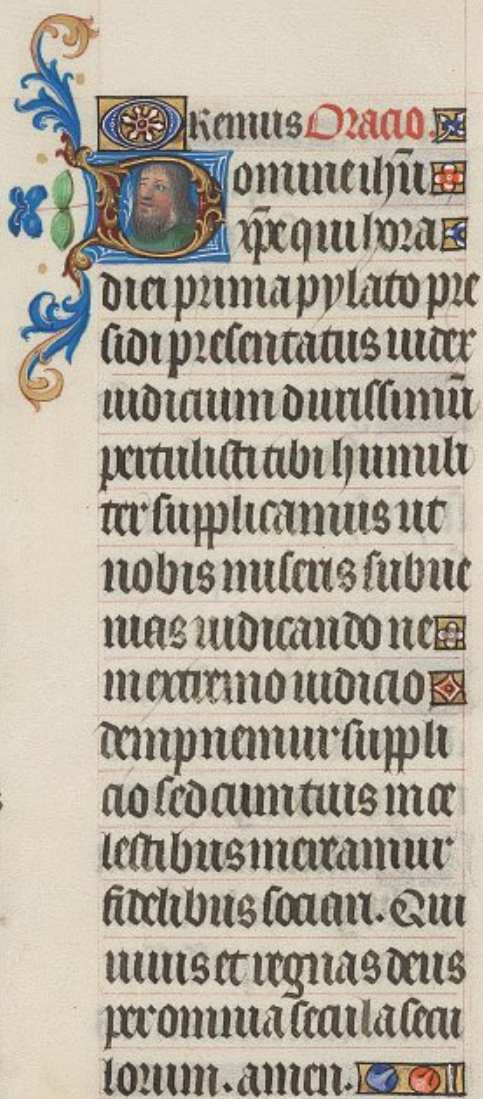 Oremus Oracio.
Domine ihū
xp̄e qui hora
diei prima pylato pre
sidi presentatus iudex
iudicium durissimū
pertulisti tibi humili
ter supplicamus ut
nobis miseris subue
nias iudicando ne
in extremo iudicio
dempnemur suppli
cio sed cum tuis in ce
lestibus mereamur
fidelibus sociari. Qui
uiuis et regnas deus
per omnia secula secu
lorum. amen.